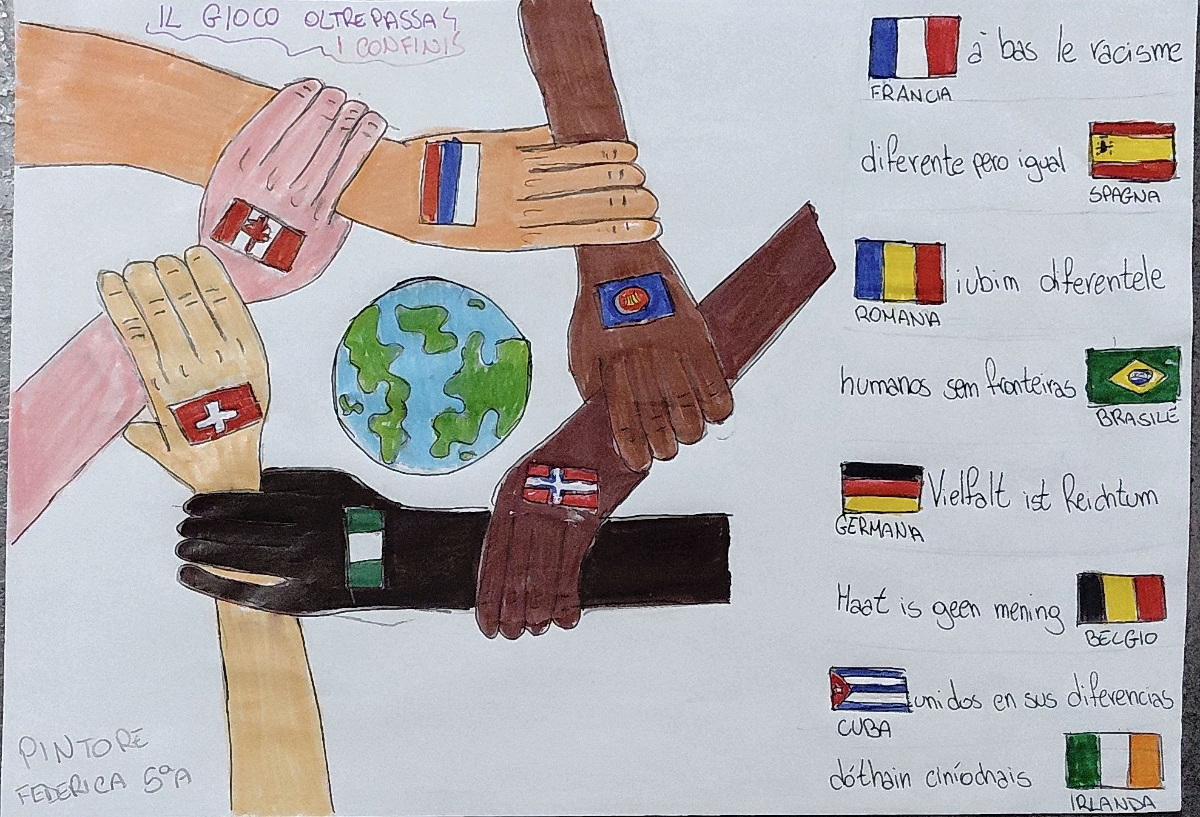 IL GIOCO OLTREPASSA
I CONFINIS
à bas le racisme
FRANCIA
diferente pero igual
SPAGNA
iubim diferentele
ROMANIA
humanos sem fronteiras
BRASILE
Vielfalt ist Reichtum
GERMANIA
Haat is geen mening
BELGIO
unidos en sus diferencias
CUBA
dóthain ciníochais
IRLANDA
PINTORE
FEDERICA 5ªA